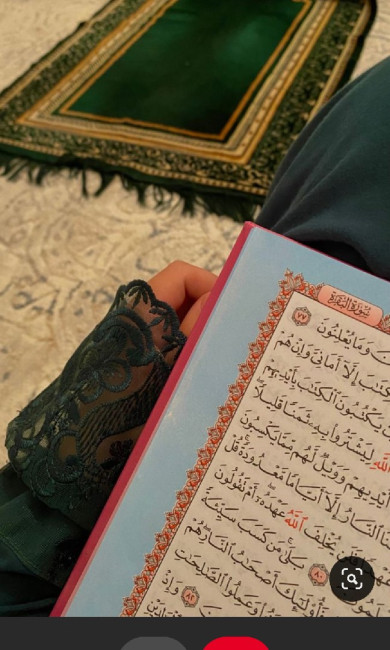 سُورَةُ البَقَرَةِ
وَمَا يُعْلِنُونَ ٧٧
إِلَّا أَمَانِىَّ وَإِنْ هُمْ
يَكْتُبُونَ الْكِتَٰبَ بِأَيْدِيهِمْ
اللَّهِ لِيَشْتَرُوا بِهِ ثَمَنًا قَلِيلًا
أَيْدِيهِمْ وَوَيْلٌ لَهُمْ مِمَّا يَكْسِبُونَ
النَّارُ إِلَّا أَيَّامًا مَعْدُودَةً قُلْ
يُخْلِفَ اللَّهُ عَهْدَهُ أَمْ تَقُولُونَ
٨٠ بَلَىٰ مَنْ كَسَبَ سَيِّئَةً
فَأُولَٰئِكَ أَصْحَٰبُ النَّارِ هُمْ
وَعَمِلُوا الصَّٰلِحَٰتِ
٨٢ وَإِذْ